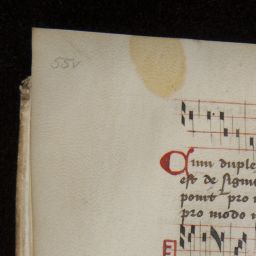 55v
Cum duple
est de signi
ponit pro
pro modo
E